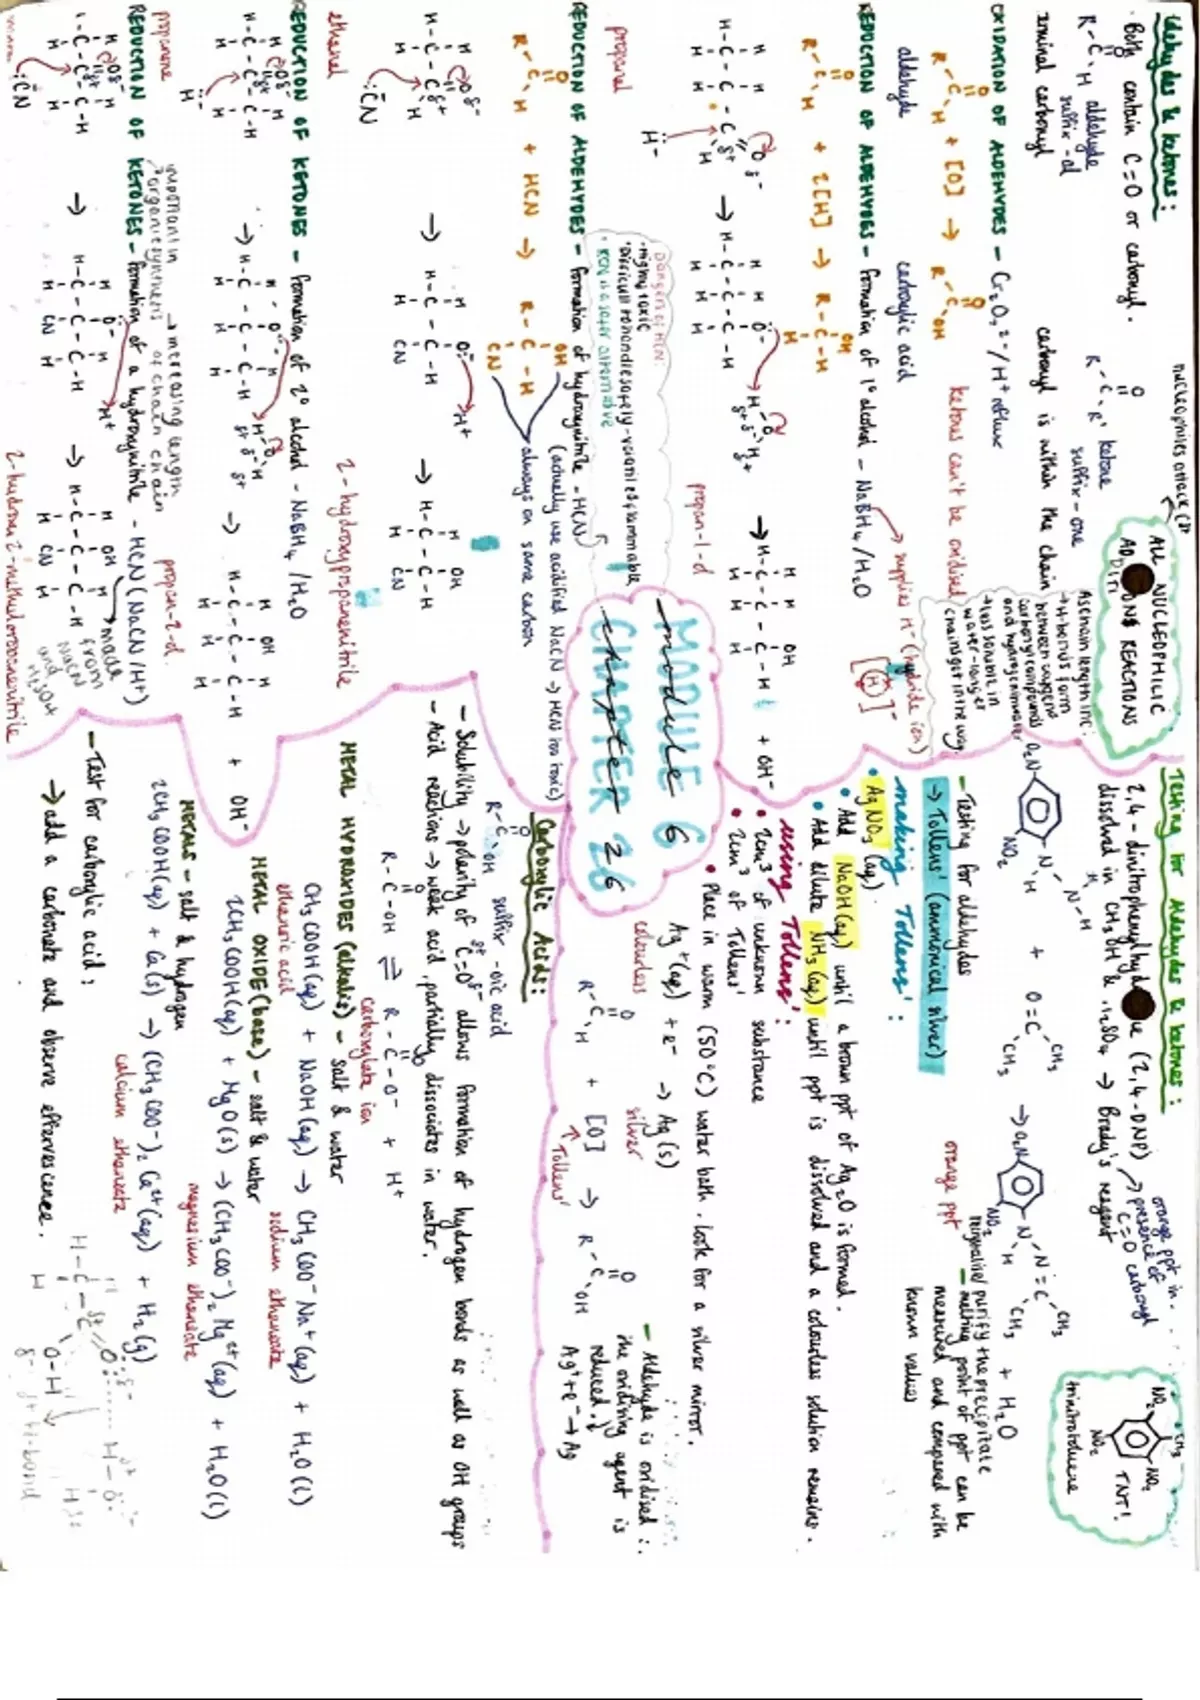 Aldehydes & ketones:
· Both contain C=O or carbonyl.
aldehyde
suffix -al
terminal carbonyl
ketone
suffix - one
carbonyl is within the chain
nucleophiles attack
ALL NUCLEOPHILIC
REACTIONS
As chain length inc:
→ H-bonds form
between oxygens
carbonyl compounds
and hydrogen in water
→ less soluble in
water - longer
chains get in the way
OXIDATION OF ALDEHYDES - Cr₂O₇²⁻/H⁺ reflux
R-C=O H + [O] → R-C=O OH
ketones can't be oxidised
aldehyde
carboxylic acid
REDUCTION OF ALDEHYDES - formation of 1° alcohol - NaBH₄/H₂O
supplies H⁻ (hydride ion)
[H]⁻
+ 2[H] →
+ OH⁻
propanal
propan-1-ol
Dangers of HCN:
· Highly toxic
· KCN is a safer alternative
REDUCTION OF ALDEHYDES - formation of hydroxynitrile - HCN
(actually use acidified NaCN → HCN too toxic)
+ HCN →
always on same carbon
ethanal
2-hydroxypropanenitrile
REDUCTION OF KETONES - formation of 2° alcohol - NaBH₄/H₂O
+ OH⁻
propanone
propan-2-ol
important in
organic synthesis
→ increasing length
of chain
REDUCTION OF KETONES - formation of a hydroxynitrile - HCN (NaCN/H⁺)
made
from
NaCN
and H₂SO₄
2-hydroxy-2-methylpropanenitrile
MODULE 6
module 6
CHAPTER 26
chapter 26
Testing for Aldehydes & ketones:
dissolved in CH₃OH & H₂SO₄ → Brady's reagent
(2,4-DNP)
orange ppt in
presence of
C=O carbonyl
TNT!
trinitrotoluene
+ H₂O
orange ppt
purify the precipitate
- melting point of ppt can be
measured and compared with
known values
- Testing for aldehydes
→ Tollens' (ammonical silver)
making Tollens':
• AgNO₃ (aq)
• Add NaOH (aq) until a brown ppt of Ag₂O is formed.
• Add dilute NH₃ (aq) until ppt is dissolved and a colourless solution remains.
using Tollens':
• 2cm³ of unknown substance
• 2cm³ of Tollens'
• Place in warm (50°C) water bath. look for a silver mirror.
Ag⁺(aq) + e⁻ → Ag(s)
colourless
silver
+ [O] →
Tollens'
- Aldehyde is oxidised ∴
the oxidising agent is
reduced.
Ag⁺ + e⁻ → Ag
Carboxylic Acids:
suffix -oic acid
- Solubility → polarity of C=O allows formation of hydrogen bonds as well as OH groups
- Acid reactions → weak acid, partially dissociates in water.
R-C-OH ⇌ R-C-O⁻ + H⁺
carboxylate ion
METAL HYDROXIDES (alkalis) - salt & water
CH₃COOH(aq) + NaOH(aq) → CH₃COO⁻Na⁺(aq) + H₂O(l)
ethanoic acid
sodium ethanoate
METAL OXIDE (base) - salt & water
2CH₃COOH(aq) + MgO(s) → (CH₃COO⁻)₂Mg²⁺(aq) + H₂O(l)
magnesium ethanoate
METALS - salt & hydrogen
2CH₃COOH(aq) + Ca(s) → (CH₃COO⁻)₂Ca²⁺(aq) + H₂(g)
calcium ethanoate
- Test for carboxylic acid:
→ add a carbonate and observe effervescence.
H-bond